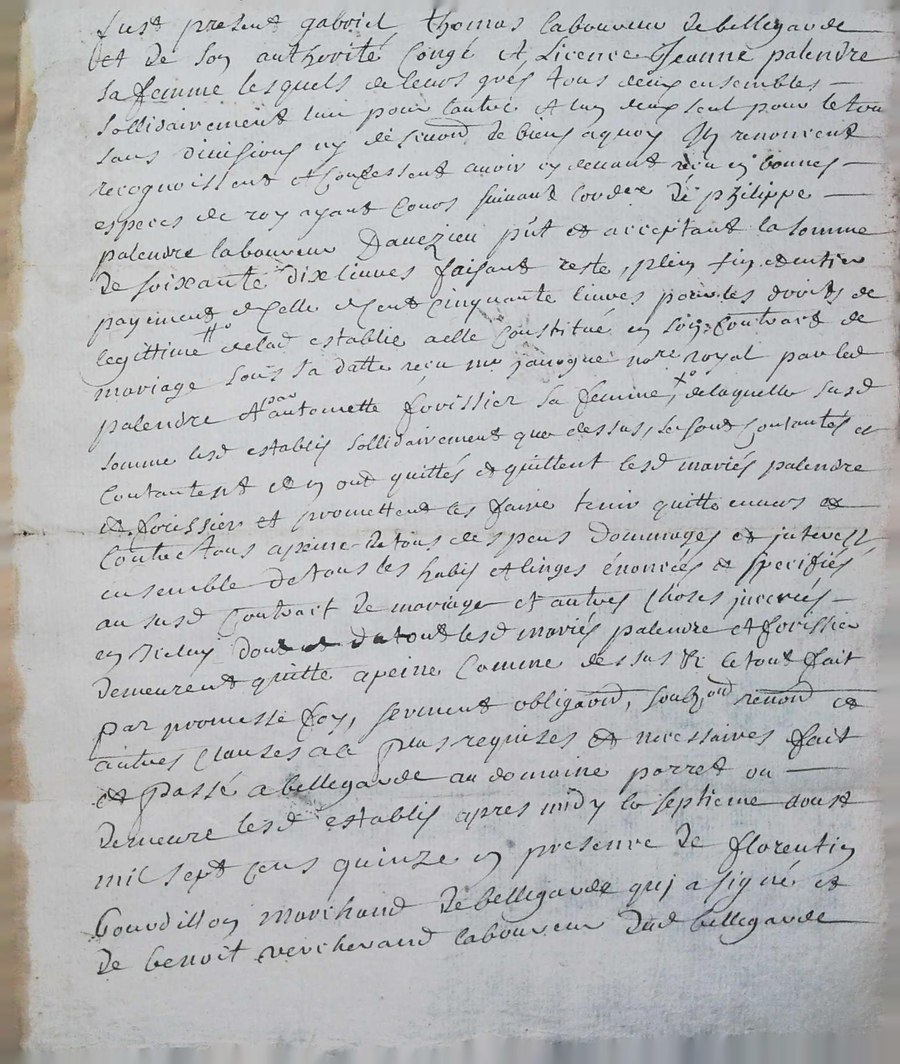 fust present gabriel thomas laboureur de bellegarde
et de son authorité congé et Licence Jeanne palendre
sa femme lesquels de leurs grés tous deux ensembles
sollidairement lun pour lautre et lun deux seul pour le tout
sans division ny de biens aquoy Ils renoncent
recognoissent et Confessent avoir cy devant reçu en bonnes
especes de roy ayant Cours suivant de philippe
palendre laboureur Daveizieu pńt et acceptant la somme
De soixante dix livres faisant reste, plein fin et entier
payement dicelle de Cent Cinquante livres pour les droits de
legittime a delad establie a elle Constitué en son Contract de
mariage sous sa datte reçu me Janogue nore royal par led
palendre et par antoinette forissier sa femme, de laquelle susd
somme lesd establis sollidairement que dessus, se sont Contantés et
Contantent et en ont quittés et quittent lesd mariés palendre
et forissier et promettent les faire tenir quitte envers et
Contre tous a peine de tous despens Dommages et interest
ensemble de tous les habis et linges énoncés et specifiés
au susd Contract de mariage et autres choses inserées
en Iceluy dont et du tout lesd mariés palendre et forissier
Demeurent quitte a peine Comme dessus le tout fait
par promesse foy, serment obligaond, soubzond renond et
autres clauses a ce plus requises et necessaires fait
et passé a bellegarde au domaine porret ou
Demeure lesd establis apres midy le septieme doust
mil sept cens quinze en presence de florentin
Bourdillon marchand de bellegarde qui a signé et
de benoit vercherand laboureur dud bellegarde